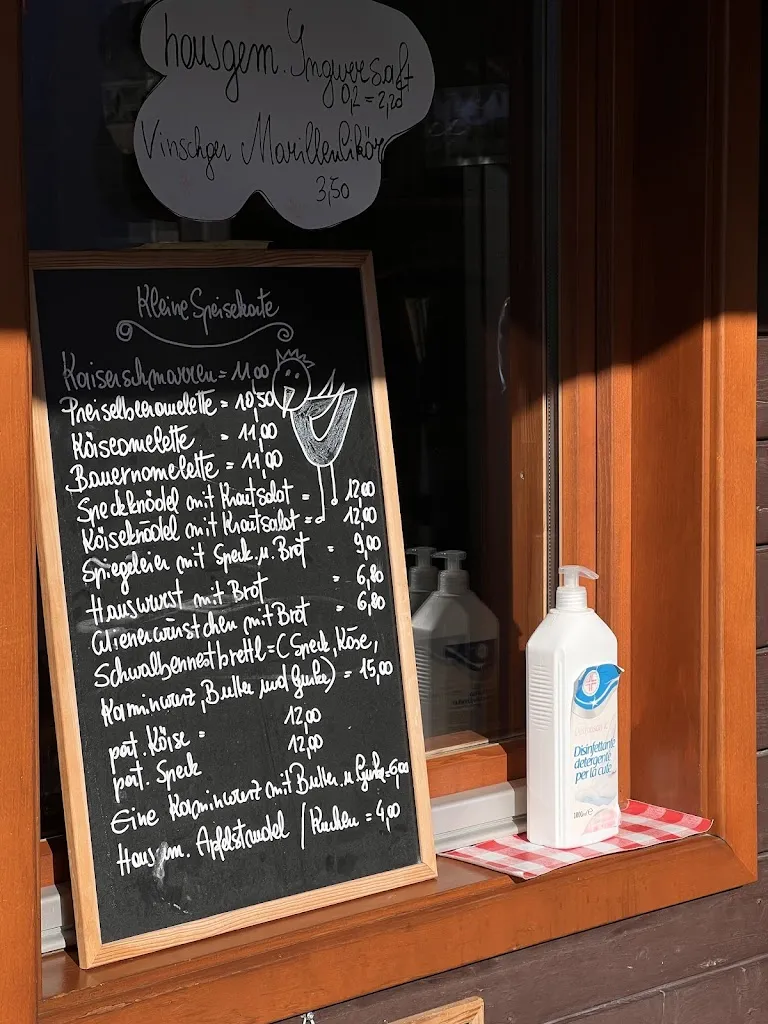 hausgem. Ingwersaft
0,2 = 2,20
Vinschger Marillenlikör
3,50
Kleine Speisekarte
Kaiserschmarren = 11,00
Preiselbeeromelette = 10,50
Käseomelette = 11,00
Bauernomelette = 11,00
Speckknödel mit Krautsalat = 12,00
Käseknödel mit Krautsalat = 12,00
Spiegeleier mit Speck u. Brot = 9,00
Hauswurst mit Brot = 6,80
Wienerwürstchen mit Brot = 6,80
Schwalbennestbrettl = (Speck, Käse,
Kaminwurz, Butter und Gurke) = 15,00
port. Käse = 12,00
port. Speck 12,00
Eine Kaminwurz mit Butter u. Gurke = 6,00
Hausgem. Apfelstrudel / Kuchen = 4,00
Disinfettante
detergente
per la cute
1000 ml e